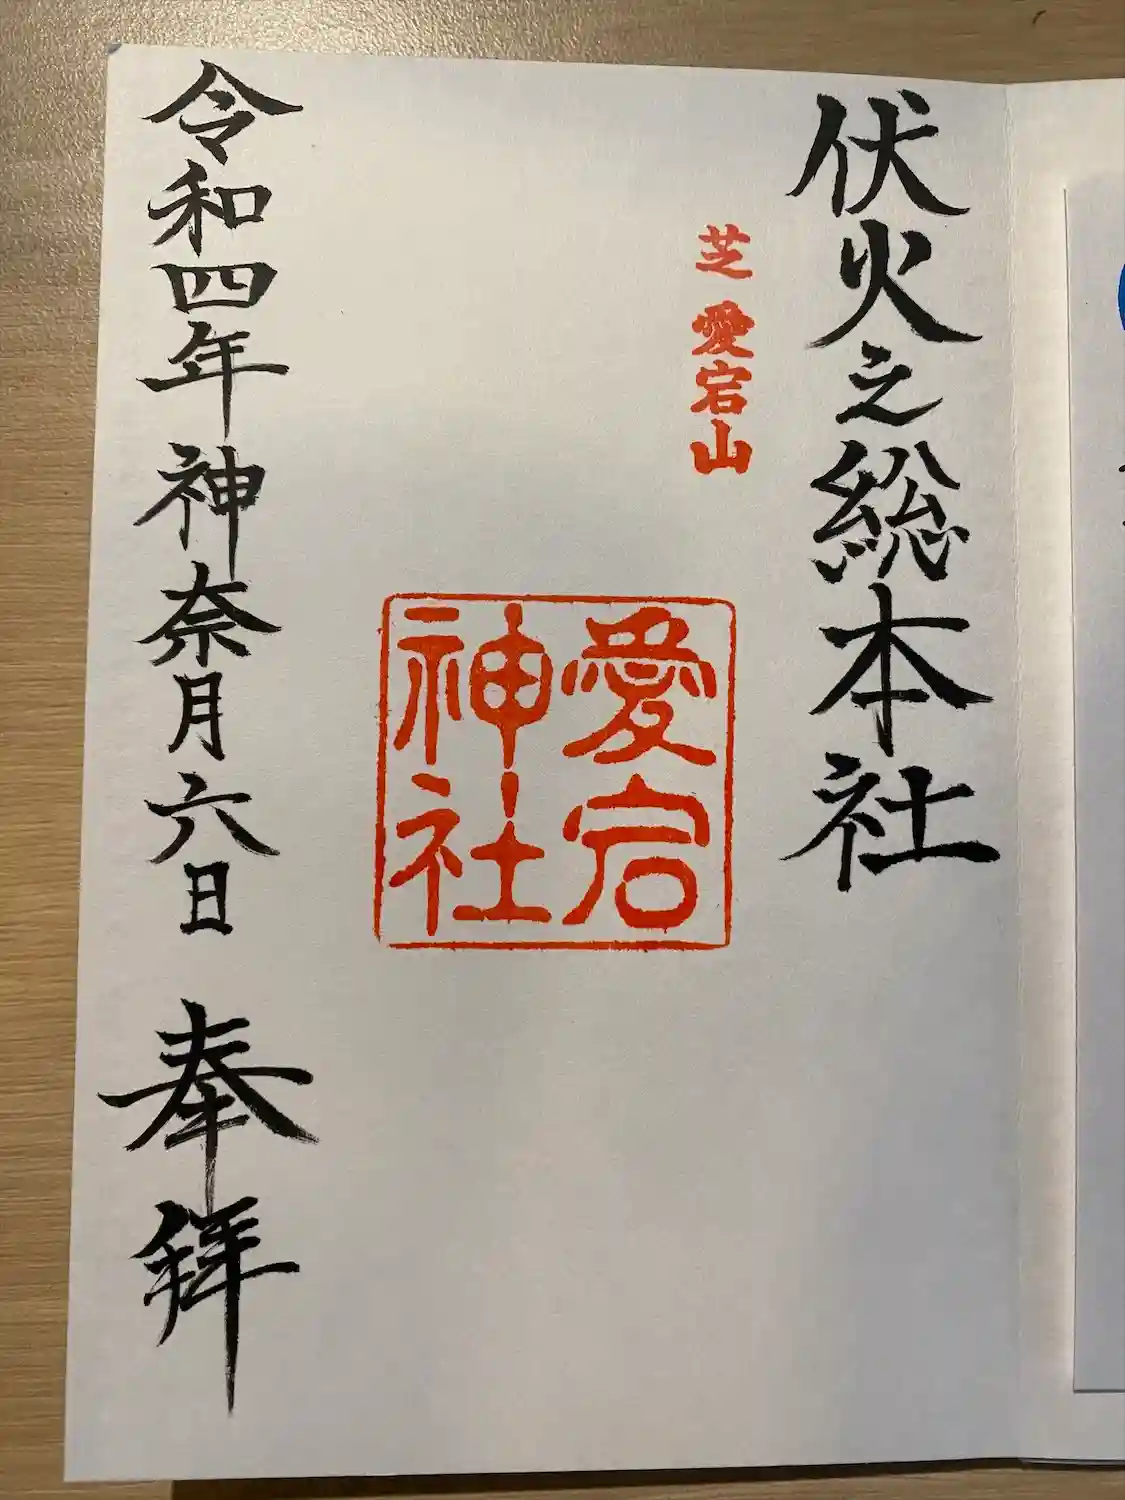 伏火之総本社
芝 愛宕山
愛宕
神社
令和四年神奈月六日 奉拝